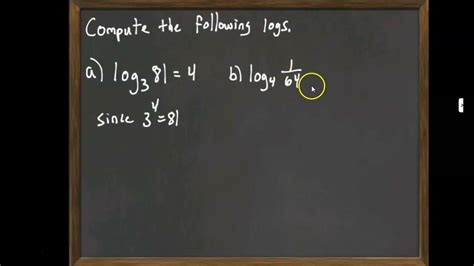 Compute the following logs.
a) log₃ 81 = 4 b) log₄ 1/64
since 3⁴ = 81